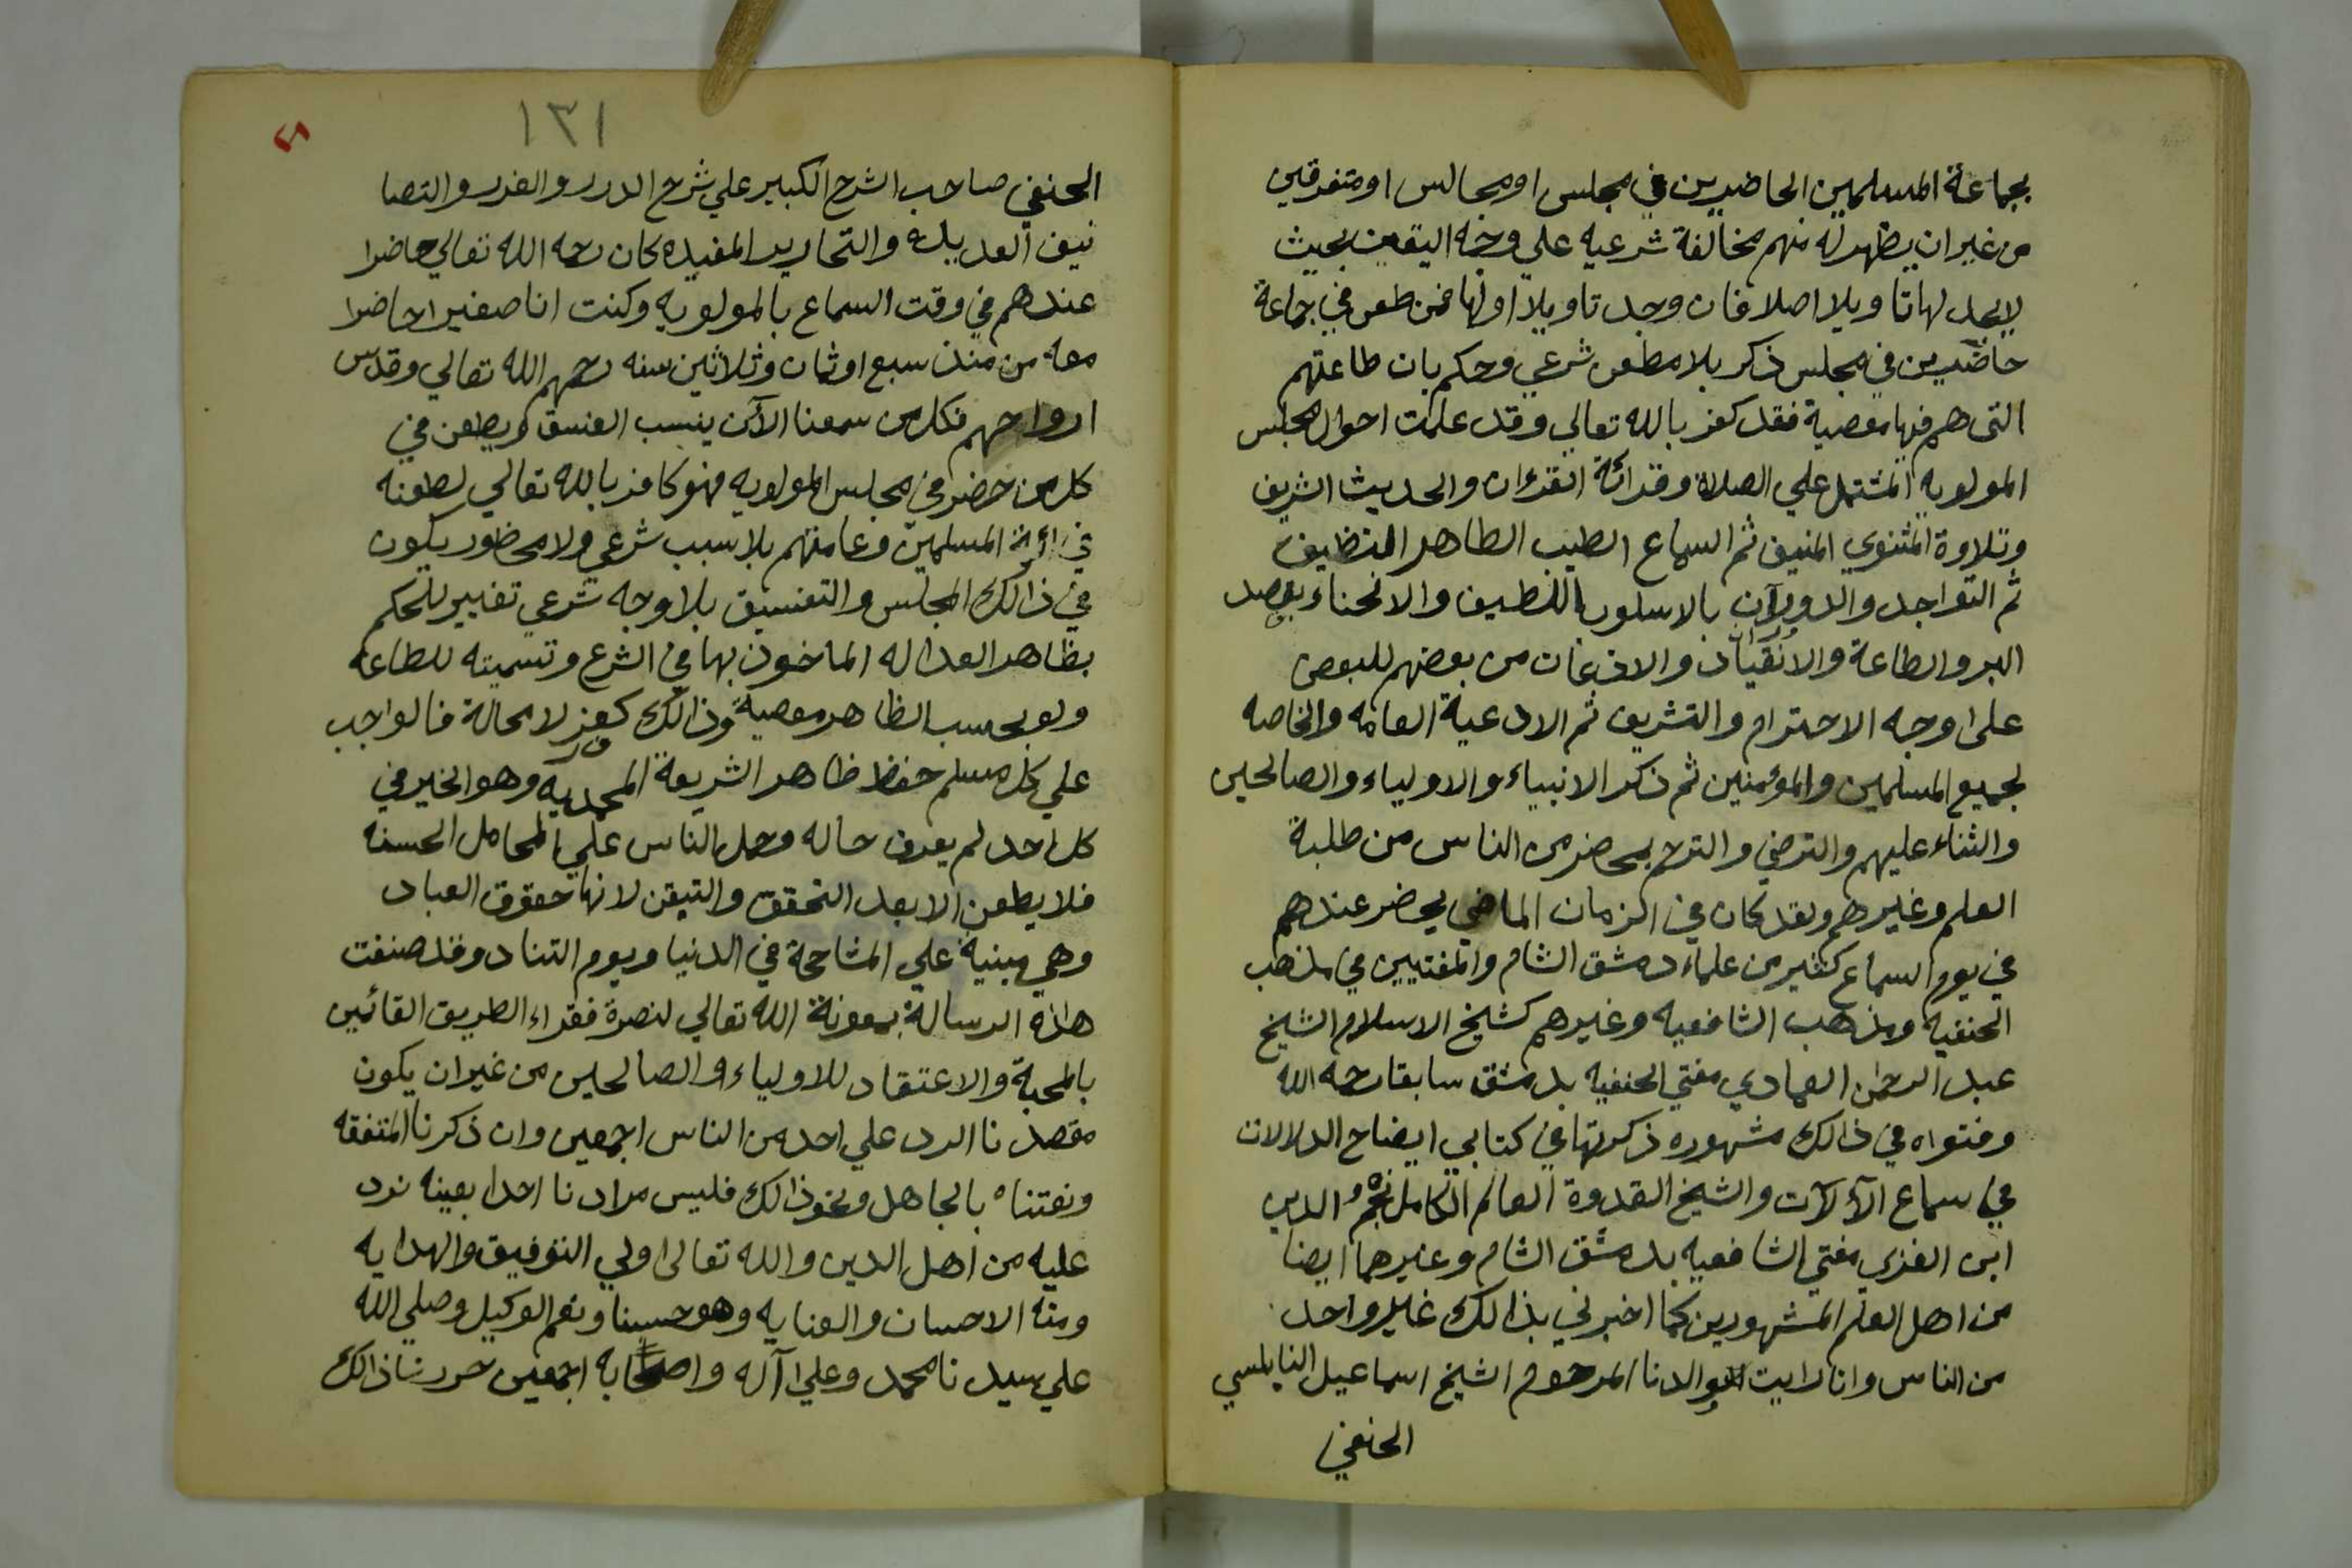 بجماعة المسلمين الحاضرين في مجلس او مجالس او متفرقين
من غير ان يظهر له منهم مخالفة شرعيه علي وجه اليقين بحيث
لا يجد لها تاويلا اصلا فان وجد تاويلا اولها فمن طعن في جماعة
حاضرين في مجلس ذكر بلا مطعن شرعي وحكم بان طاعتهم
التى هم فيها معصية فقد كفر بالله تعالي وقد علمت احوال مجلس
المولويه المشتمل علي الصلاة وقرائة القرءان والحديث الشريف
وتلاوة المثنوي المنيف ثم السماع الطيب الطاهر النظيف
ثم التواجد والدوران بالاسلوب اللطيف والانحناء بقصد
البر والطاعة والانقياد والاذعان من بعضهم للبعض
على وجه الاحترام والتشريف ثم الادعية العامه والخاصه
لجميع المسلمين والمؤمنين ثم ذكر الانبياء والاولياء والصالحين
والثناء عليهم والترضي والترحم بمحضر من الناس من طلبة
العلم وغيرهم ولقد كان في الزمان الماضي يحضر عندهم
في يوم السماع كثير من علماء دمشق الشام والمفتيين في مذهب
الحنفيه ومذهب الشافعيه وغيرهم كشيخ الاسلام الشيخ
عبد الرحمن العمادي مفتي الحنفيه بدمشق سابقا رحمه الله
وفتواه في ذالك مشهوره ذكرتها في كتابي ايضاح الدلالات
في سماع الآلآت والشيخ القدوة العالم الكامل نجم الدين
ابن الغزي مفتي الشافعيه بدمشق الشام وغيرهما ايضا
من اهل العلم المشهورين كما اخبرني بذالك غير واحد
من الناس وانا رايت والدنا المرحوم الشيخ اسماعيل النابلسي
الحنفي
١٣١
الحنفي صاحب الشرح الكبير علي شرح الدرر والغرر والتصا
نيف العديدة والتحارير المفيده كان رحمه الله تعالي حاضرا
عندهم في وقت السماع بالمولويه وكنت انا صغيرا حاضرا
معه من منذ سبع او ثمان وثلاثين سنه رحمهم الله تعالي وقدس
ارواحهم فكل من سمعنا الآن ينسب الفسق او يطعن في
كل من حضر في مجلس المولويه فهو كافر بالله تعالي لطعنه
في ائمة المسلمين وعامتهم بلا سبب شرعي ولا محظور يكون
في ذالك المجلس والتفسيق بلا وجه شرعي تغيير للحكم
بظاهر العداله الماخوذ بها في الشرع وتسميته للطاعة
ولو بحسب الظاهر معصية وذالك كفر لا محالة فالواجب
علي كل مسلم حفظ ظاهر الشريعة المحمديه وهو الخير في
كل احد لم يعرف حاله وحمل الناس علي المحامل الحسنه
فلا يطعن الا بعد التحقق والتيقن لانها حقوق العباد
وهي مبنية علي المشاححة في الدنيا ويوم التناد وقد صنفت
هذه الرسالة بمعونة الله تعالي لنصرة فقراء الطريق القائمين
بالمحبة والاعتقاد للاولياء والصالحين من غير ان يكون
مقصدنا الرد علي احد من الناس اجمعين وان ذكرنا المتفقه
ونعتناه بالجاهل ونحو ذالك فليس مرادنا احدا بعينه نرد
عليه من اهل الدين والله تعالى اولي التوفيق والهدايه
ومنه الاحسان والعنايه وهو حسبنا ونعم الوكيل وصلي الله
علي سيدنا محمد وعلى آله واصحابه اجمعين حررنا ذالك